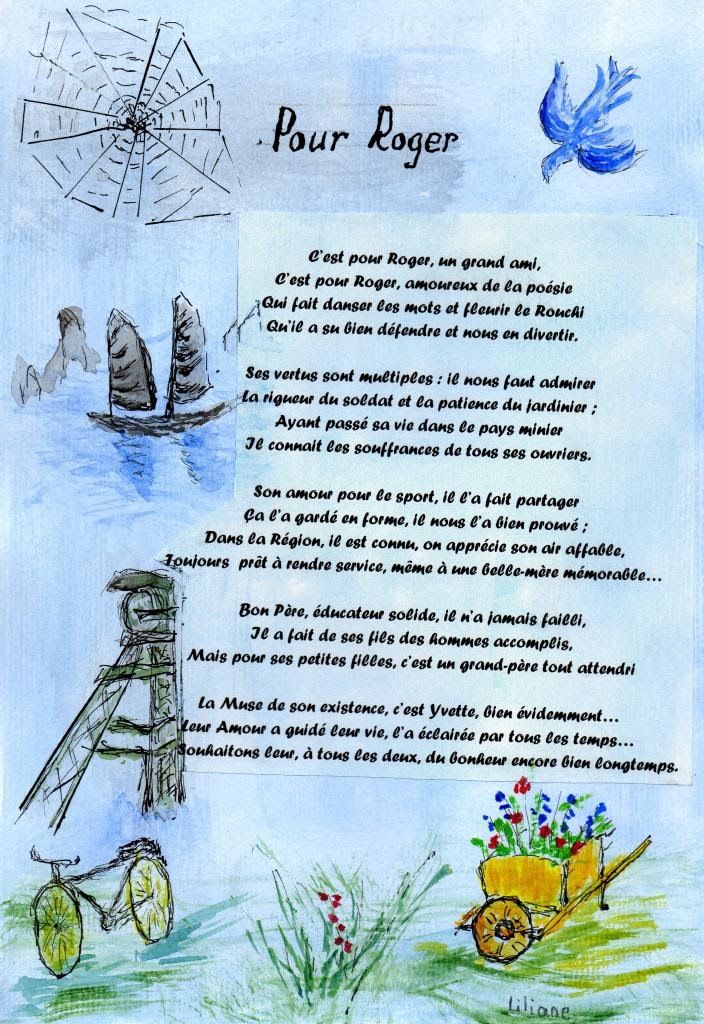 Pour Roger
C'est pour Roger, un grand ami,
C'est pour Roger, amoureux de la poésie
Qui fait danser les mots et fleurir le Rouchi
Qu'il a su bien défendre et nous en divertir.
Ses vertus sont multiples : il nous faut admirer
La rigueur du soldat et la patience du jardinier ;
Ayant passé sa vie dans le pays minier
Il connait les souffrances de tous ses ouvriers.
Son amour pour le sport, il l'a fait partager
Ça l'a gardé en forme, il nous l'a bien prouvé ;
Dans la Région, il est connu, on apprécie son air affable,
Toujours prêt à rendre service, même à une belle-mère mémorable...
Bon Père, éducateur solide, il n'a jamais failli,
Il a fait de ses fils des hommes accomplis,
Mais pour ses petites filles, c'est un grand-père tout attendri
La Muse de son existence, c'est Yvette, bien évidemment...
Leur Amour a guidé leur vie, l'a éclairée par tous les temps...
Souhaitons leur, à tous les deux, du bonheur encore bien longtemps.
Liliane